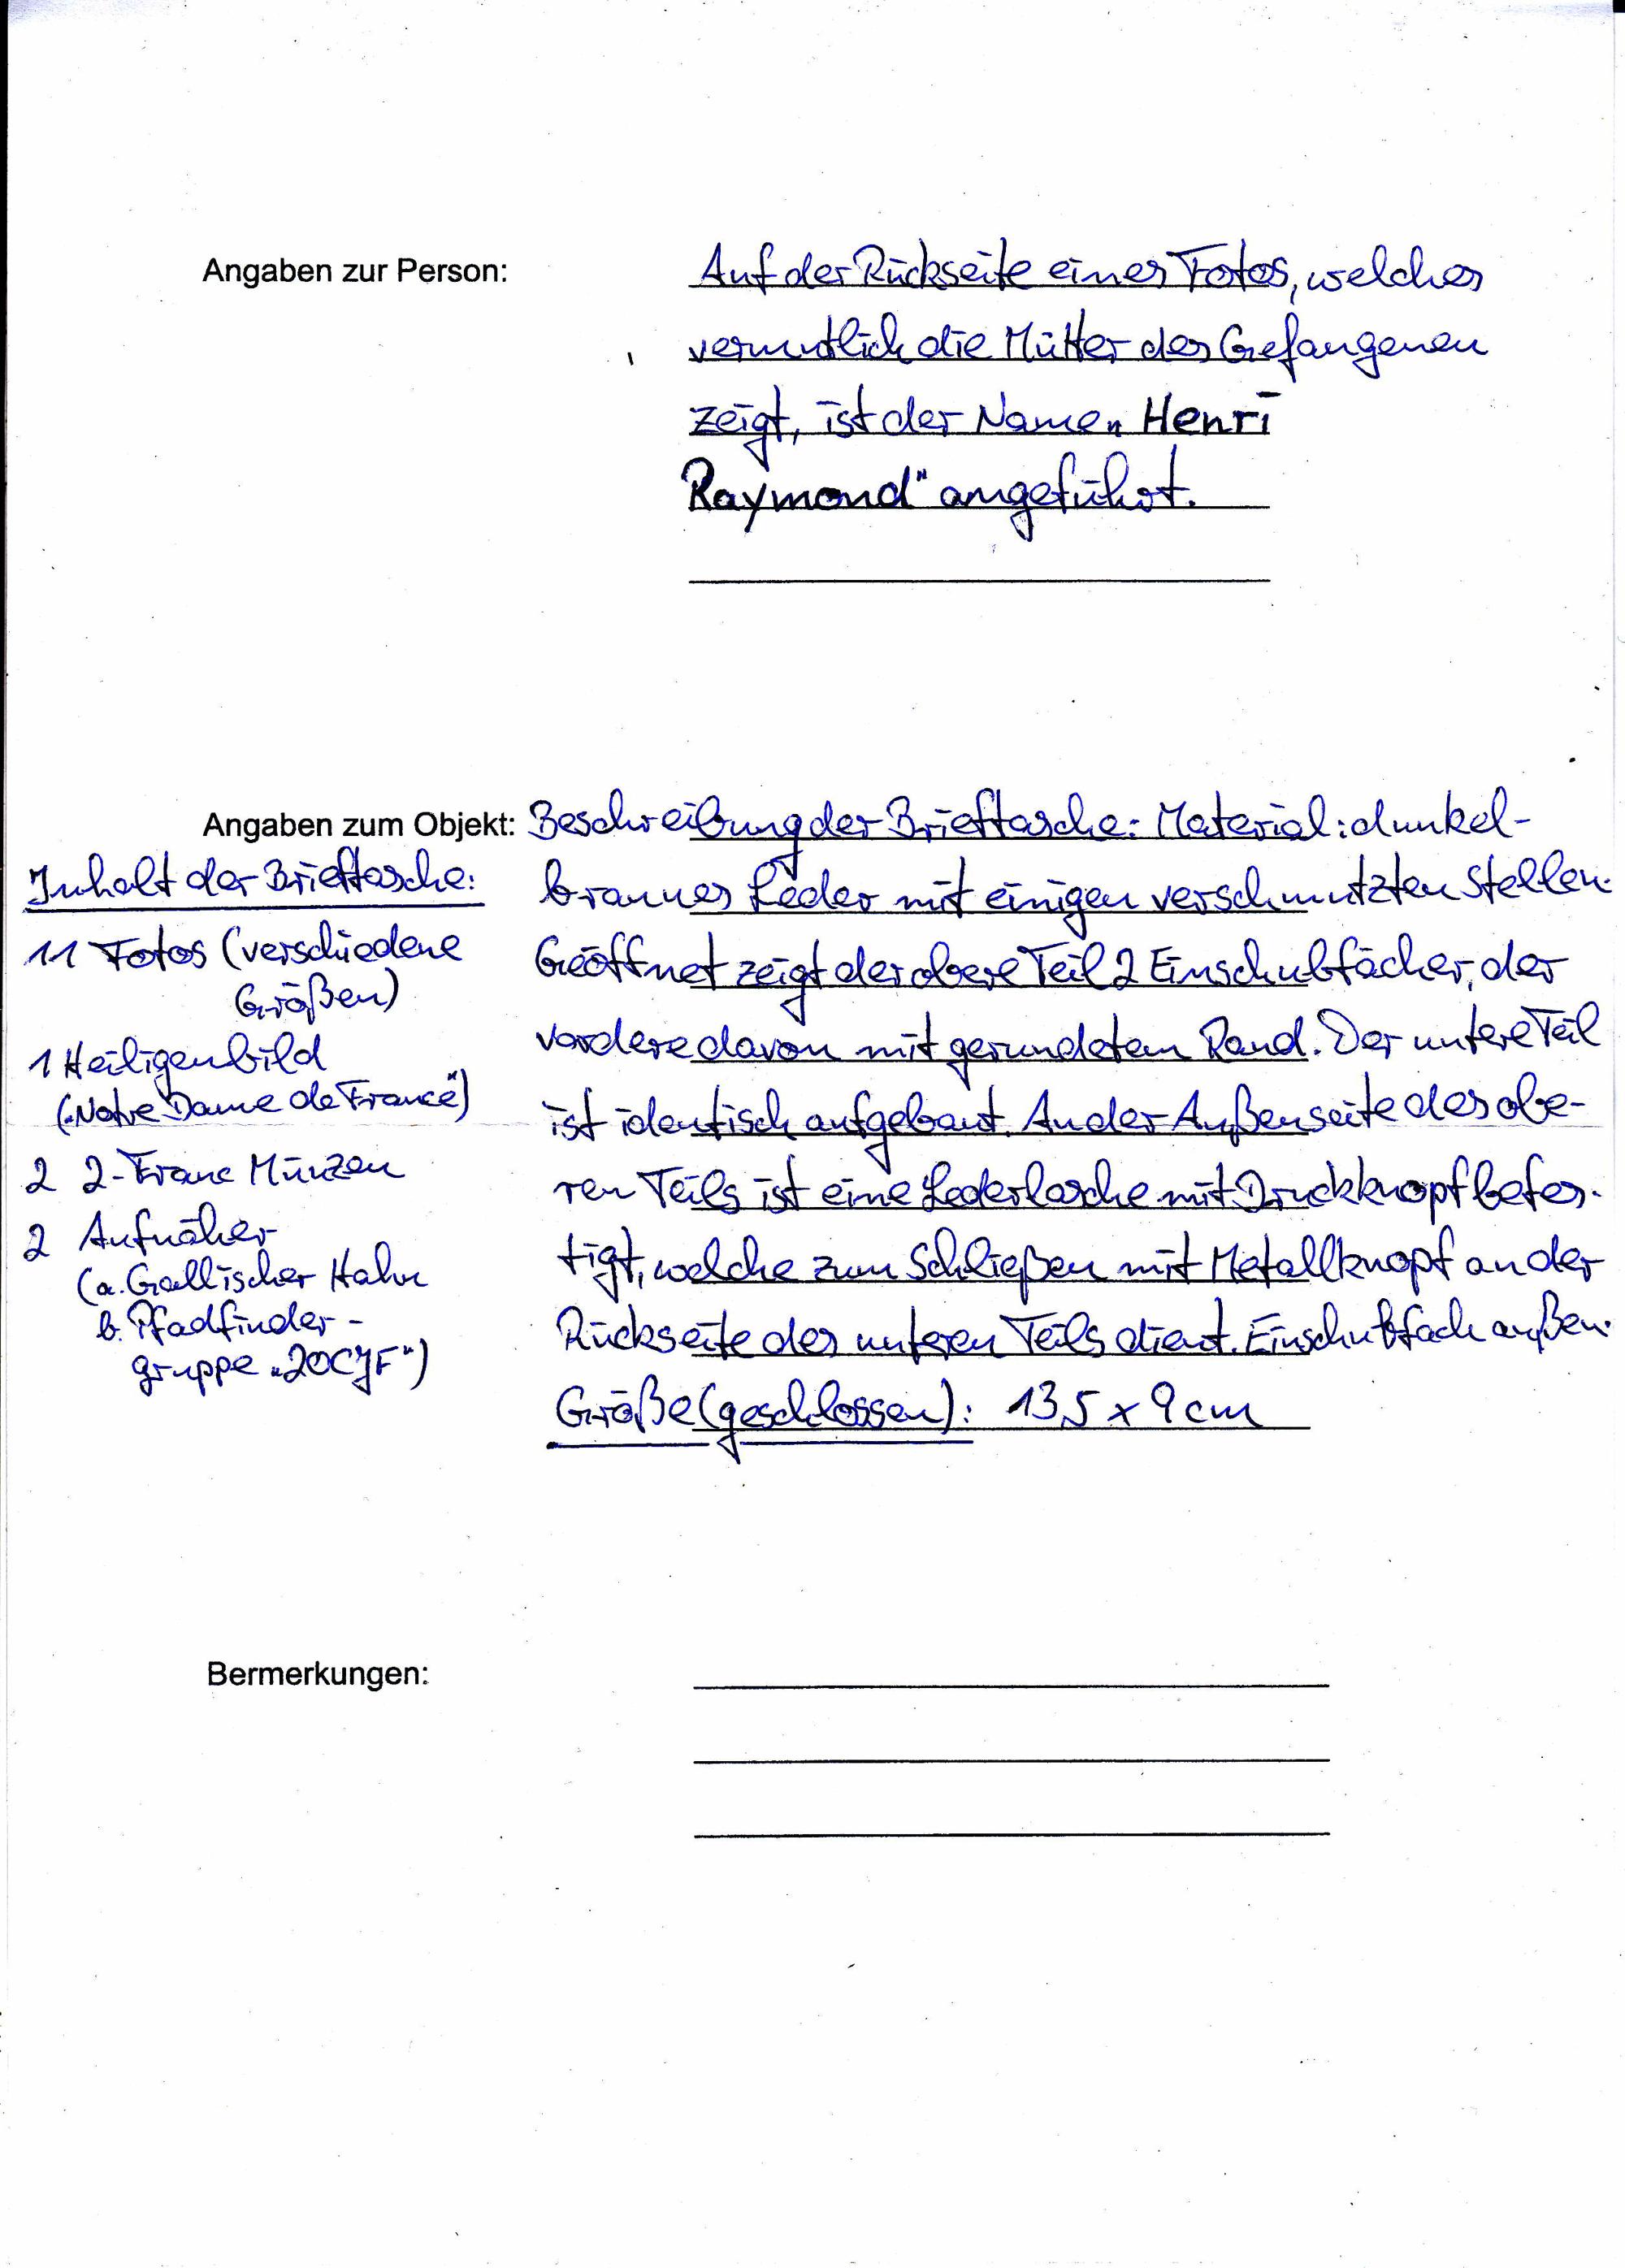 Angaben zur Person:
Auf der Rückseite eines Fotos, welches
vermutlich die Mutter des Gefangenen
zeigt, ist der Name „Henri
Raymond" angeführt.
Angaben zum Objekt:
Beschreibung der Brieftasche: Material: dunkel-
braunes Leder mit einigen verschmutzten Stellen.
Geöffnet zeigt der obere Teil 2 Einschubfächer, der
vordere davon mit gerundetem Rand. Der untere Teil
ist identisch aufgebaut. An der Außenseite des obe-
ren Teils ist eine Lederlasche mit Druckknopf befes-
tigt, welche zum Schließen mit Metallknopf an der
Rückseite des unteren Teils dient. Einschubfach außen.
Größe (geschlossen): 13,5 x 9 cm
Inhalt der Brieftasche:
11 Fotos (verschiedene
Größen)
1 Heiligenbild
(„Notre Dame de France")
2 2-Franc Münzen
2 Aufnäher
(a. Gallischer Hahn
b. Pfadfinder-
gruppe „20CJF")
Bermerkungen: